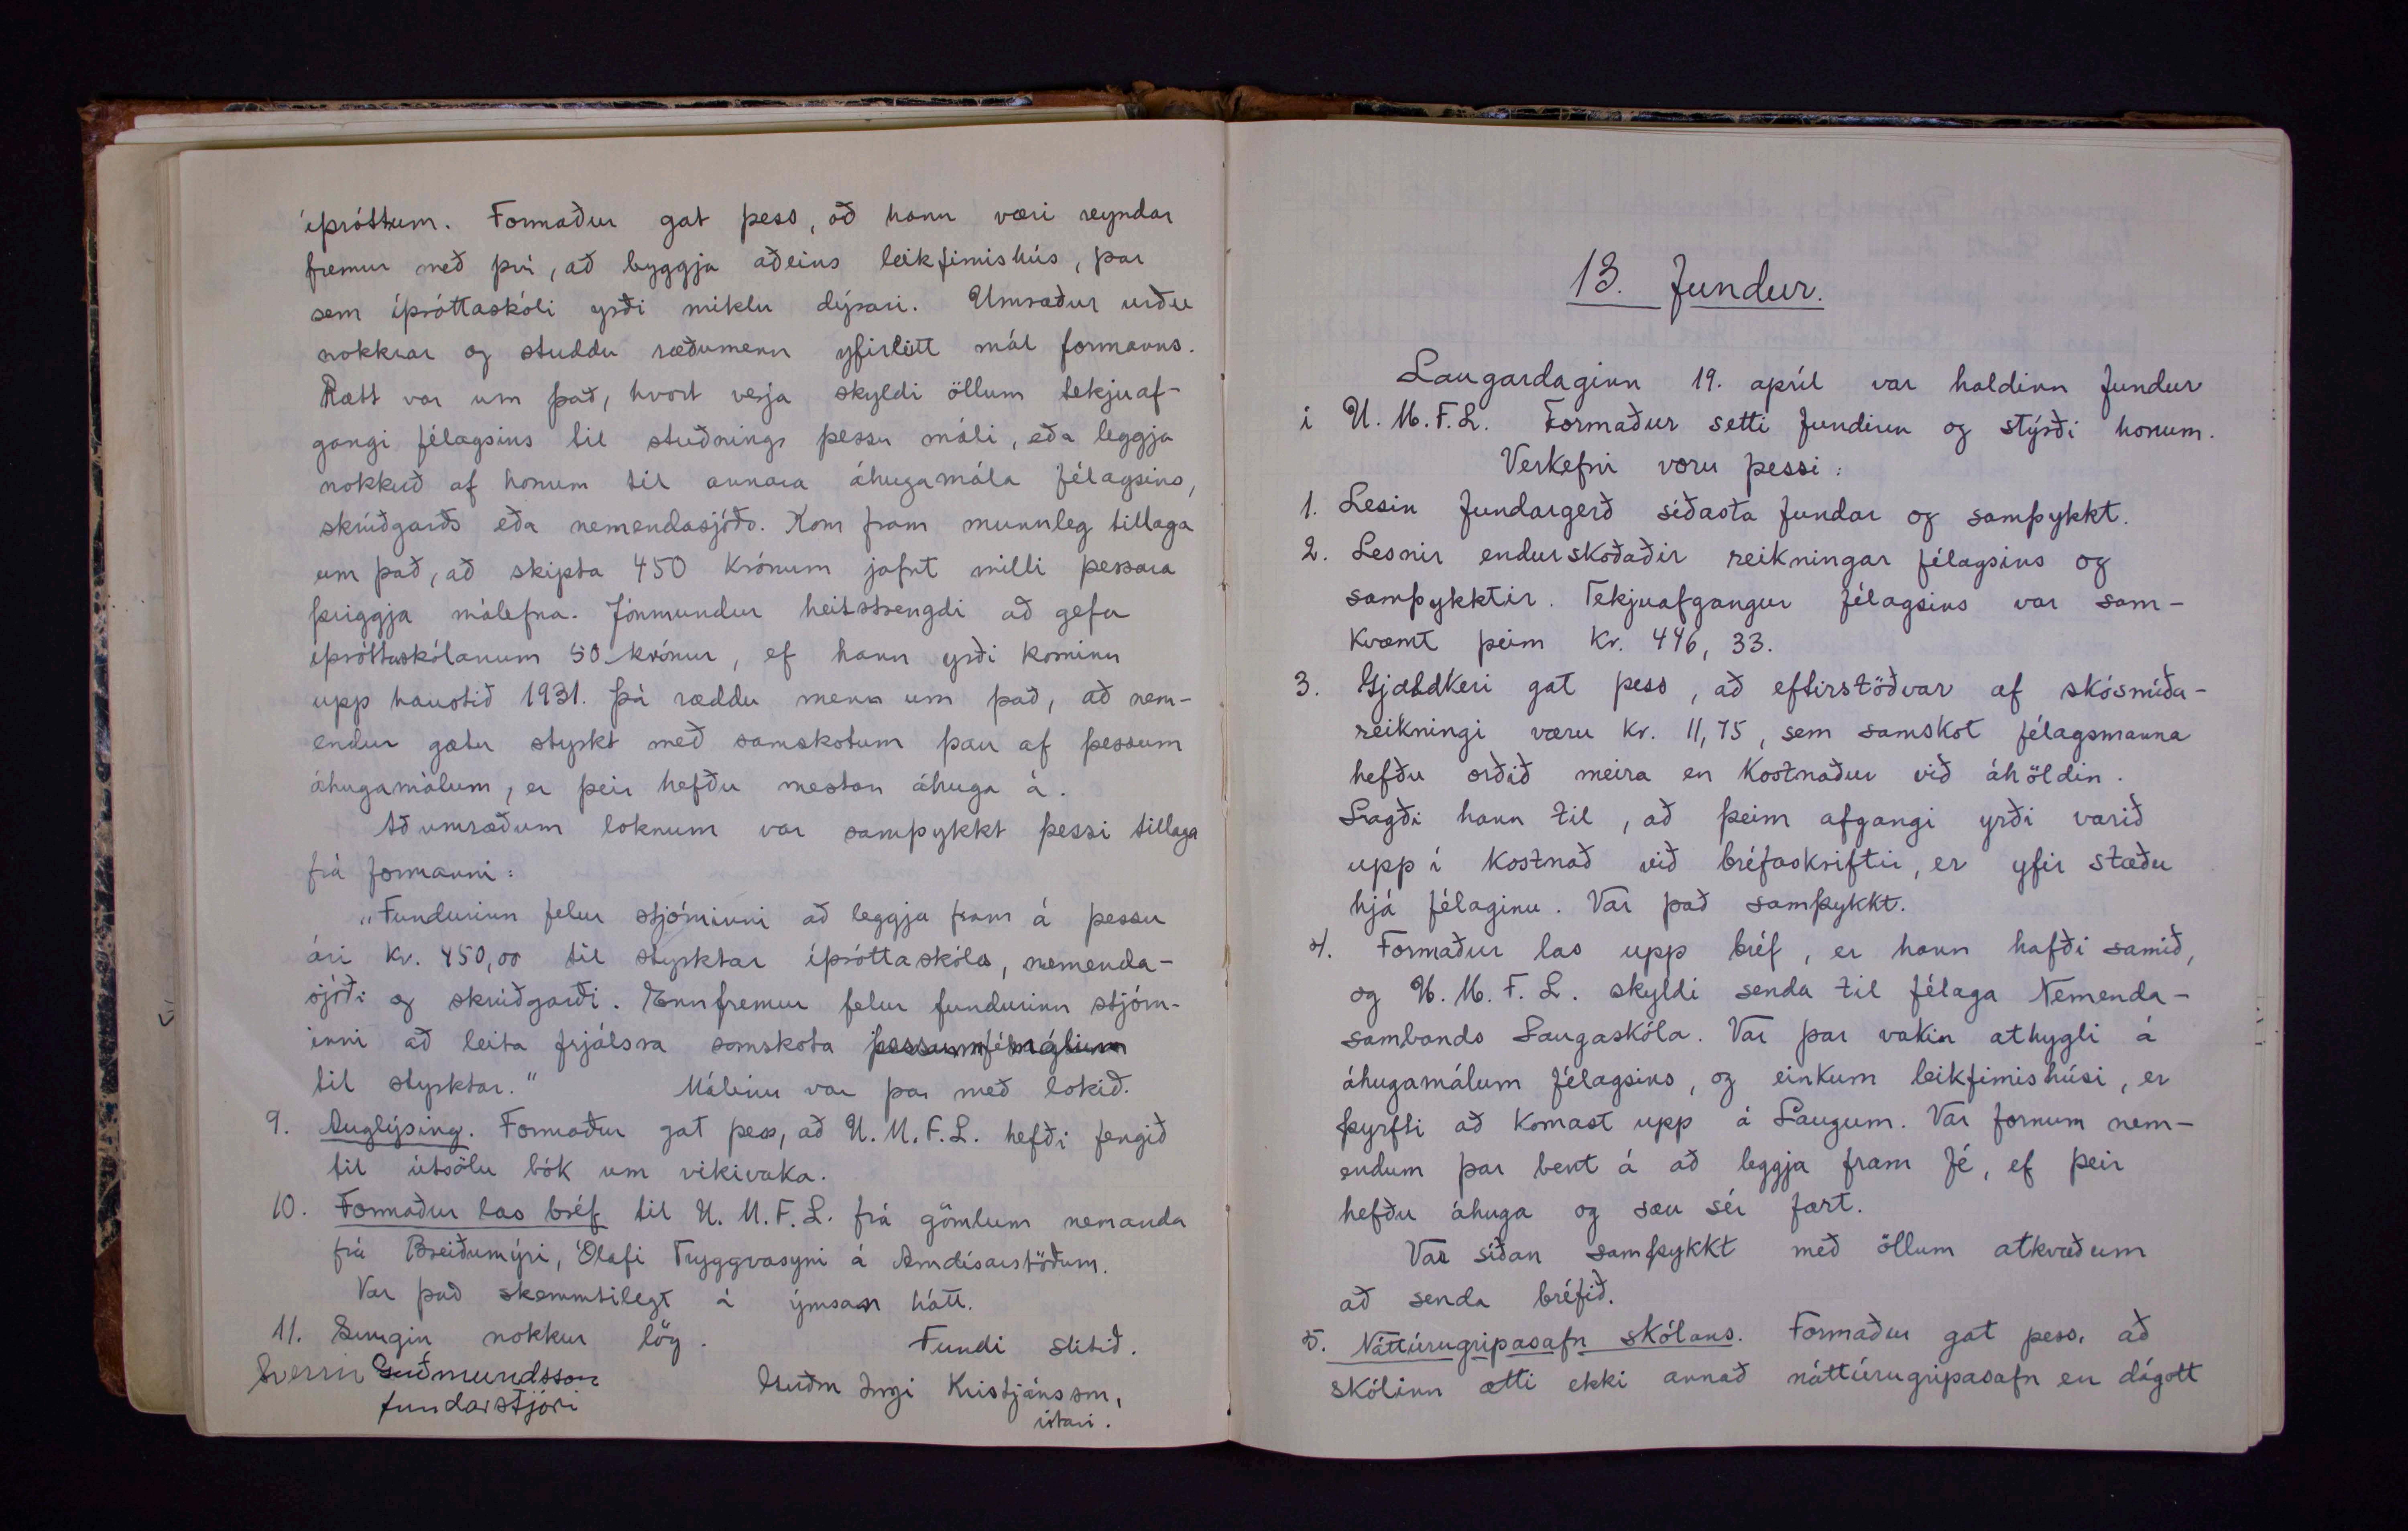 íþróttum. Formaður gat þess, að hann væri reyndar
fremur með því, að byggja aðeins leikfimishús, þar
sem íþróttaskóli yrði miklu dýrari. Umræður urðu
nokkrar og studdu ræðumenn yfirlitt mál formanns.
Rætt var um það, hvort verja skyldi öllum tekjuaf-
gangi félagsins til stuðnings þessu máli, eða leggja
nokkuð af honum til annara áhugamála félagsins,
skrúðgarðs eða nemendasjóðs. Kom fram munnleg tillaga
um það, að skipta 450 krónum jafnt milli þessara
þriggja málefna. Jónmundur heitstrengdi að gefa
íþróttaskólanum 50 krónur, ef hann yrði kominn
upp haustið 1931. Þá ræddu menn um það, að nem-
endur gætu styrkt með samskotum þau af þessum
áhugamálum, er þeir hefðu mestan áhuga á.
Að umræðum loknum var samþykkt þessi tillaga
frá formanni:
„Fundurinn felur stjórninni að leggja fram á þessu
ári kr. 450,00 til styrktar íþróttaskóla, nemenda-
sjóði og skrúðgarði. Ennfremur felur fundurinn stjórn-
inni að leita frjálsra samskota
til styrktar." Málinu var þar með lokið.
9. Auglýsing. Formaður gat þess, að U.M.F.L. hefði fengið
til útsölu bók um vikivaka.
10. Formaður las bréf til U.M.F.L. frá gömlum nemanda
frá Breiðumýri, Ólafi Tryggvasyni á Arndísarstöðum.
Var það skemmtilegt á ýmsan hátt.
11. Sungin nokkur lög. Fundi slitið.
Sverrir Guðmundsson
fundarstjóri
Guðm Ingi Kristjánsson,
ritari.
13. Fundur.
Laugardaginn 19. apríl var haldinn fundur
í U.M.F.L. Formaður setti fundinn og stýrði honum.
Verkefni voru þessi:
1. Lesin fundargerð síðasta fundar og samþykkt.
2. Lesnir endurskoðaðir reikningar félagsins og
samþykktir. Tekjuafgangur félagsins var sam-
kvæmt þeim kr. 446,33.
3. Gjaldkeri gat þess, að eftirstöðvar af skósmíða-
reikningi væru kr. 11,75, sem samskot félagsmanna
hefðu orðið meira en kostnaður við áhöldin.
Lagði hann til, að þeim afgangi yrði varið
upp í kostnað við bréfaskriftir, er yfir stæðu
hjá félaginu. Var það samþykkt.
4. Formaður las upp bréf, er hann hafði samið,
og U.M.F.L. skyldi senda til félaga Nemenda-
sambands Laugaskóla. Var þar vakin athygli á
áhugamálum félagsins, og einkum leikfimishúsi, er
þyrfti að komast upp á Laugum. Var fornum nem-
endum þar bent á að leggja fram fé, ef þeir
hefðu áhuga og sæu sér fært.
Var síðan samþykkt með öllum atkvæðum
að senda bréfið.
5. Náttúrugripasafn skólans. Formaður gat þess, að
skólinn ætti ekki annað náttúrugripasafn en dágott